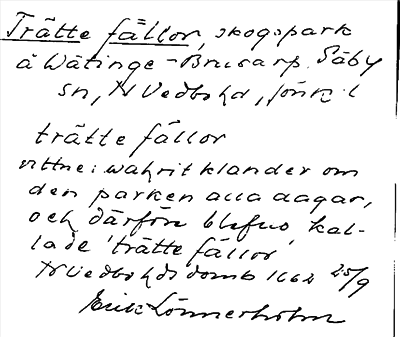 Trätte fällor, skogspark
å Wätinge - Brusarp. Säby
sn, N Vedbo hd, Jönk. l
trätte fällor
vittne: wahrit klander om
den parken alla dagar,
och därföre blefuo kal-
lade 'trätte fällor'
N Vedbo hds domb 1662 25/9
Erik Lönnerholm